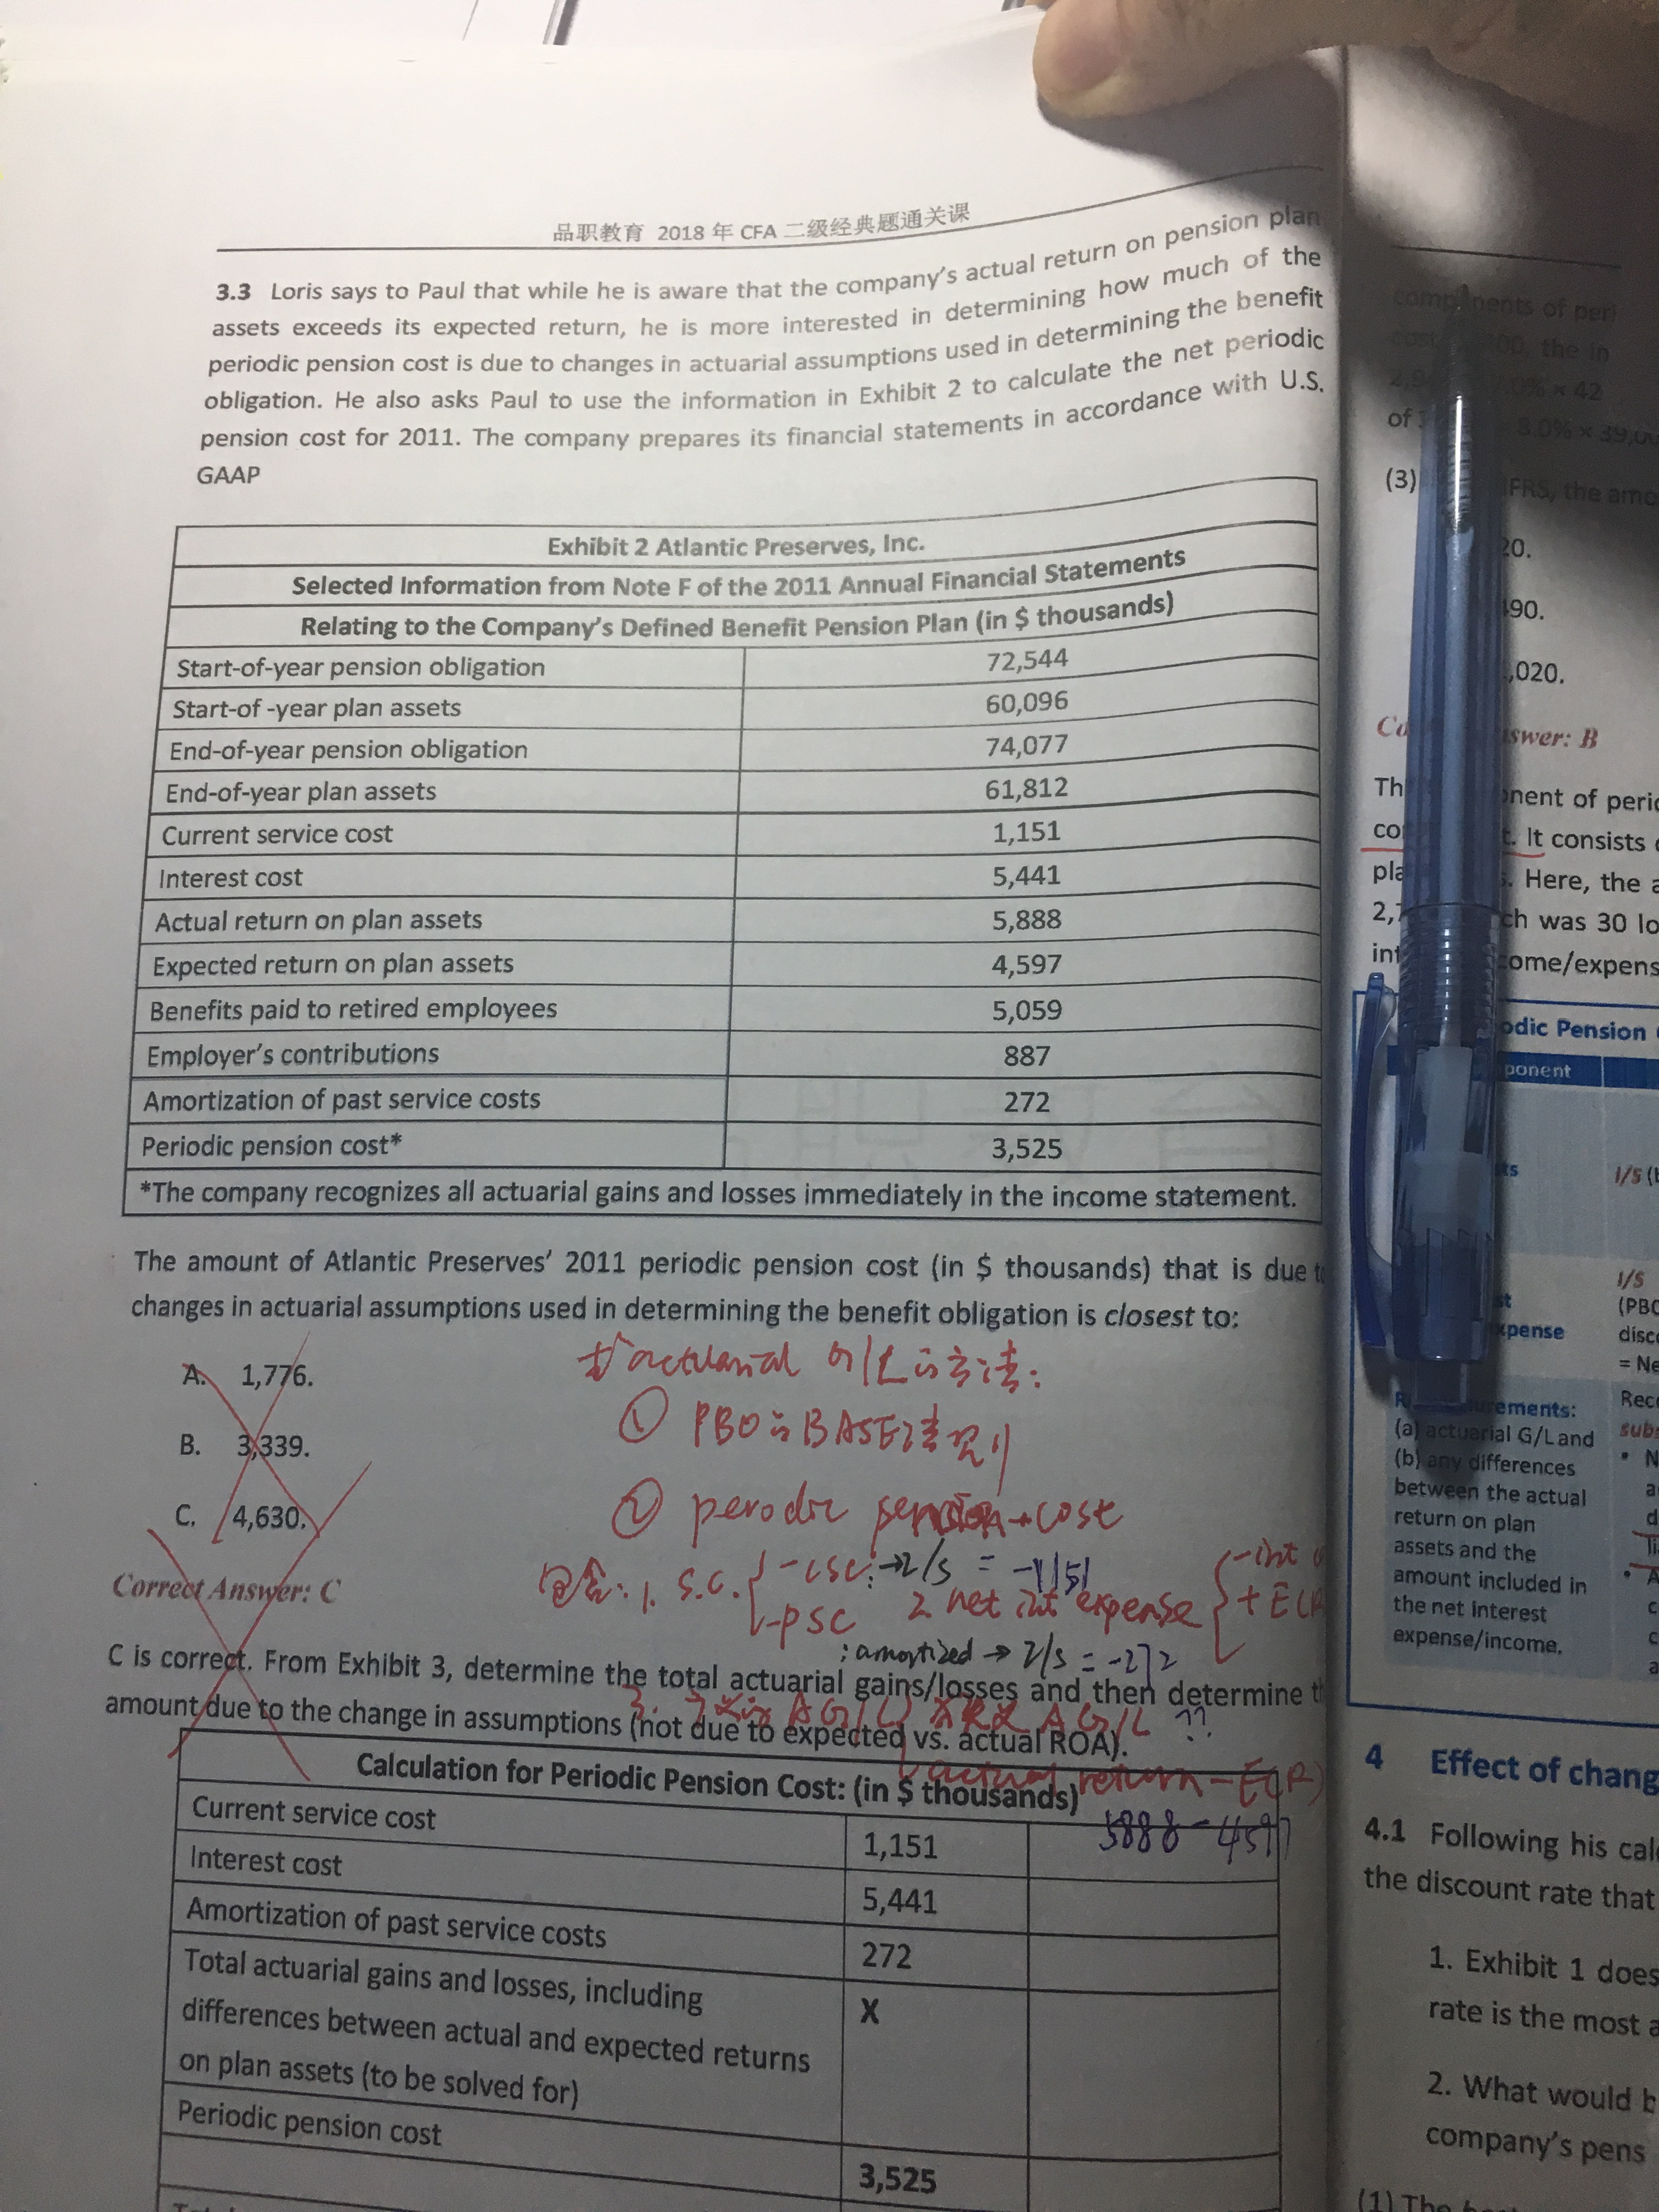 品职教育 2018 年 CFA 二级经典题通关课
3.3 Loris says to Paul that while he is aware that the company's actual return on pension plan
assets exceeds its expected return, he is more interested in determining how much of the
periodic pension cost is due to changes in actuarial assumptions used in determining the benefit
obligation. He also asks Paul to use the information in Exhibit 2 to calculate the net periodic
pension cost for 2011. The company prepares its financial statements in accordance with U.S.
GAAP
Exhibit 2 Atlantic Preserves, Inc.
Selected Information from Note F of the 2011 Annual Financial Statements
Relating to the Company's Defined Benefit Pension Plan (in $ thousands)
Start-of-year pension obligation 72,544
Start-of -year plan assets 60,096
End-of-year pension obligation 74,077
End-of-year plan assets 61,812
Current service cost 1,151
Interest cost 5,441
Actual return on plan assets 5,888
Expected return on plan assets 4,597
Benefits paid to retired employees 5,059
Employer's contributions 887
Amortization of past service costs 272
Periodic pension cost* 3,525
*The company recognizes all actuarial gains and losses immediately in the income statement.
The amount of Atlantic Preserves' 2011 periodic pension cost (in $ thousands) that is due to
changes in actuarial assumptions used in determining the benefit obligation is closest to:
A. 1,776.
B. 3,339.
C. 4,630.
actuarial G/L 的方法:
① PBO 的 BASE法则
② perodic pension cost
1. S.C. -CSC: → I/S = -1151
-PSC 2. net int expense
+ E(R
: amortized → I/S = -272
Correct Answer: C
C is correct. From Exhibit 3, determine the total actuarial gains/losses and then determine
amount due to the change in assumptions (not due to expected vs. actual ROA).
actual return - E(R)
5888 - 4597
Calculation for Periodic Pension Cost: (in $ thousands)
Current service cost 1,151
Interest cost 5,441
Amortization of past service costs 272
Total actuarial gains and losses, including
differences between actual and expected returns
on plan assets (to be solved for) X
Periodic pension cost
3,525
components of peri
the in
× 42
of
8.0% × 39,0
(3) IFRS, the amo
20.
490.
,020.
swer: B
nent of perio
It consists
Here, the a
ch was 30 lo
come/expens
odic Pension
ponent
I/S (
I/S
(PBO
disco
= Ne
xpense
Reco
(a) actuarial G/L and
(b) any differences
between the actual
return on plan
assets and the
amount included in
the net interest
expense/income.
4 Effect of chang
4.1 Following his cal
the discount rate that
1. Exhibit 1 does
rate is the most a
2. What would b
company's pens